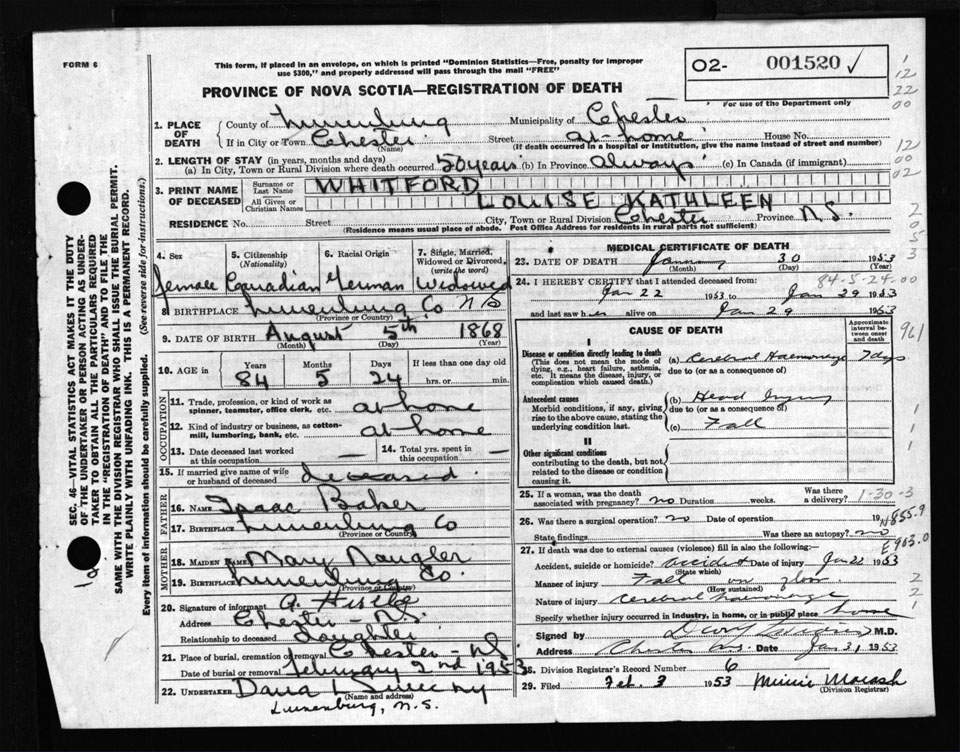 FORM 6
This form, if placed in an envelope, on which is printed "Dominion Statistics—Free, penalty for improper
use $300," and properly addressed will pass through the mail "FREE"
O2- 001520 ✓
For use of the Department only
PROVINCE OF NOVA SCOTIA—REGISTRATION OF DEATH
1. PLACE OF DEATH
County of Lunenburg Municipality of Chester
If in City or Town Chester Street at-home House No.
(Name) (If death occurred in a hospital or institution, give the name instead of street and number)
2. LENGTH OF STAY (in years, months and days)
(a) In City, Town or Rural Division where death occurred 50 years (b) In Province always (c) In Canada (if immigrant)
3. PRINT NAME OF DECEASED
Surname or Last Name WHITFORD
All Given or Christian Names LOUISE KATHLEEN
RESIDENCE No. Street City, Town or Rural Division Chester Province N.S.
(Residence means usual place of abode. Post Office Address for residents in rural parts not sufficient)
4. Sex 5. Citizenship (Nationality) 6. Racial Origin 7. Single, Married, Widowed or Divorced. (write the word)
Female Canadian German Widowed
8. BIRTHPLACE Lunenburg Co NS
(Province or Country)
9. DATE OF BIRTH August 5th 1868
(Month) (Day) (Year)
10. AGE in Years Months Days If less than one day old
84 5 24 hrs. or min.
OCCUPATION
11. Trade, profession, or kind of work as spinner, teamster, office clerk, etc. at home
12. Kind of industry or business, as cotton-mill, lumbering, bank, etc. at-home
13. Date deceased last worked at this occupation —
14. Total yrs. spent in this occupation —
15. If married give name of wife or husband of deceased deceased
FATHER
16. NAME Isaac Baker
17. BIRTHPLACE Lunenburg Co
(Province or Country)
MOTHER
18. MAIDEN NAME Mary Naugler
19. BIRTHPLACE Lunenburg Co.
(Province or Country)
20. Signature of informant A.
Address Chester - N.S.
Relationship to deceased daughter
21. Place of burial, cremation or removal Chester - NS
Date of burial or removal February 2nd 1953
22. UNDERTAKER Dana
(Name and address)
Lunenburg, N.S.
MEDICAL CERTIFICATE OF DEATH
23. DATE OF DEATH January 30 1953
(Month) (Day) (Year)
84-5-24-00
24. I HEREBY CERTIFY that I attended deceased from:
Jan 22 1953 to Jan 29 1953
and last saw her alive on Jan 29 1953
CAUSE OF DEATH
Approximate interval between onset and death
I
Disease or condition directly leading to death
(This does not mean the mode of dying, e.g., heart failure, asthenia, etc. It means the disease, injury, or complication which caused death.)
(a) Cerebral Haemorrage 7 days
due to (or as a consequence of)
Antecedent causes
Morbid conditions, if any, giving rise to the above cause, stating the underlying condition last.
(b) Head Injury
due to (or as a consequence of)
(c) Fall
II
Other significant conditions
contributing to the death, but not related to the disease or condition causing it.
25. If a woman, was the death associated with pregnancy? no Duration weeks. Was there a delivery?
1-30-3
26. Was there a surgical operation? no Date of operation 19
State findings Was there an autopsy? no
N855.9
E903.0
27. If death was due to external causes (violence) fill in also the following:—
Accident, suicide or homicide? accident Date of injury Jan 22 1953
(State which)
Manner of injury Fall on floor
(How sustained)
Nature of injury Cerebral haemorrage
Specify whether injury occurred in industry, in home, or in public place home
Signed by M.D.
Address Chester N.S. Date Jan 31 1953
28. Division Registrar's Record Number 6
29. Filed Feb. 3 1953 Minnie
(Division Registrar)
SEC. 46—VITAL STATISTICS ACT MAKES IT THE DUTY
OF THE UNDERTAKER OR PERSON ACTING AS UNDER-
TAKER TO OBTAIN ALL THE PARTICULARS REQUIRED
IN THE "REGISTRATION OF DEATH" AND TO FILE THE
SAME WITH THE DIVISION REGISTRAR WHO SHALL ISSUE THE BURIAL PERMIT.
WRITE PLAINLY WITH UNFADING INK. THIS IS A PERMANENT RECORD.
Every item of information should be carefully supplied. (See reverse side for instructions.)
1
12
22
00
12
00
02
2
05
3
961
1
1
1
2
2
1